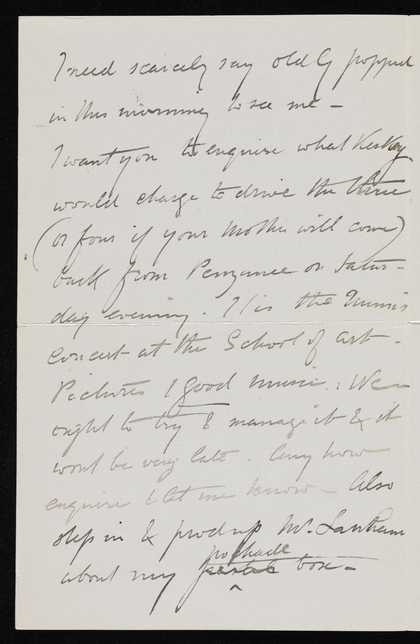 I need scarcely say old G popped
in this morning to see me –
I want you to enquire what Kelkey
would charge to drive the three
(or four if your Mother will come)
back from Penzance on Satur-
day evening. It is the Nunn's
Concert at the School of Art –
Pictures & good music. We
ought to try & manage it & it
wont be very late. Any how
enquire & let me know – Also
step in & prod up Mr. Lanham
about my pochade box –